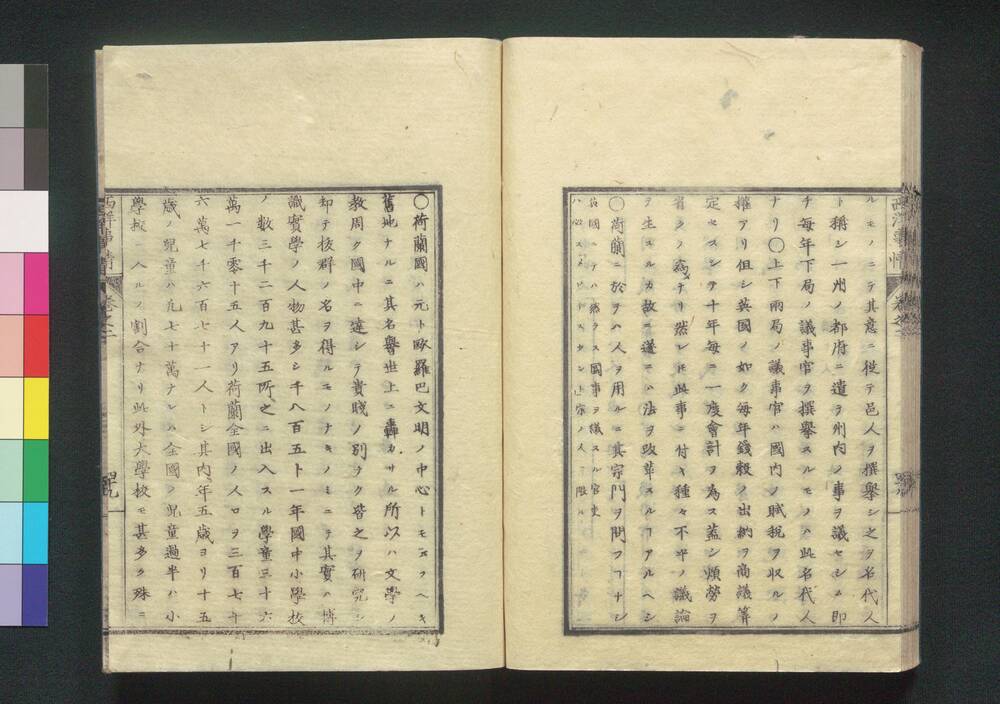 ルモノニテ其意ニ従テ邑人ヲ撰擧シ之ヲ名代人
ト稱シ一州ノ都府ニ遣ヲ州内ノ事ヲ議セシム即
チ毎年下局ノ議事官ヲ撰擧スルモノハ此名代人
ナリ〇上下兩局ノ議事官ハ國内ノ賦税ヲ収ルノ
權アリ但シ英國ノ如ク毎年錢穀ノ出納ヲ商議算
定セスシテ十年毎ニ一度會計ヲ為ス蓋シ煩勞ヲ
省クノ為ナリ然レ𪜈此事ニ付キ種々不平ノ議論
ヲ生スルカ故ニ遂ニハ法ヲ改革スルヿアルヘシ
〇荷蘭ニ於テハ人ヲ用ルニ其宗門ヲ問フヿナシ
他國ニテハ然ラス國事ヲ議スル官吏
西洋事情 卷之二
〇荷蘭國ハ元ト歐羅巴文明ノ中心トモ云フヘキ
舊地ナルニ其名譽世上ニ轟カサル所以ハ文學ノ
教周ク國中ニ達シテ貴賤ノ別ナク皆之ヲ研究シ
却テ拔群ノ名ヲ得ルモノナキノミニテ其實ハ博
識實學ノ人物甚多シ千八百五十一年國中小學校
ノ數三千二百九十五所之ニ出入スル學童三十六
萬一千零十五人アリ荷蘭全國ノ人口ヲ三百七十
六萬七千六百七十一人トシ其内年五歳ヨリ十五
歳ノ兒童ハ凡七十萬ナレハ全國ノ兒童過半ハ小
學校ニ入ルノ割合ナリ此外大學校モ甚多ク殊ニ
西洋事情 卷之二 四九